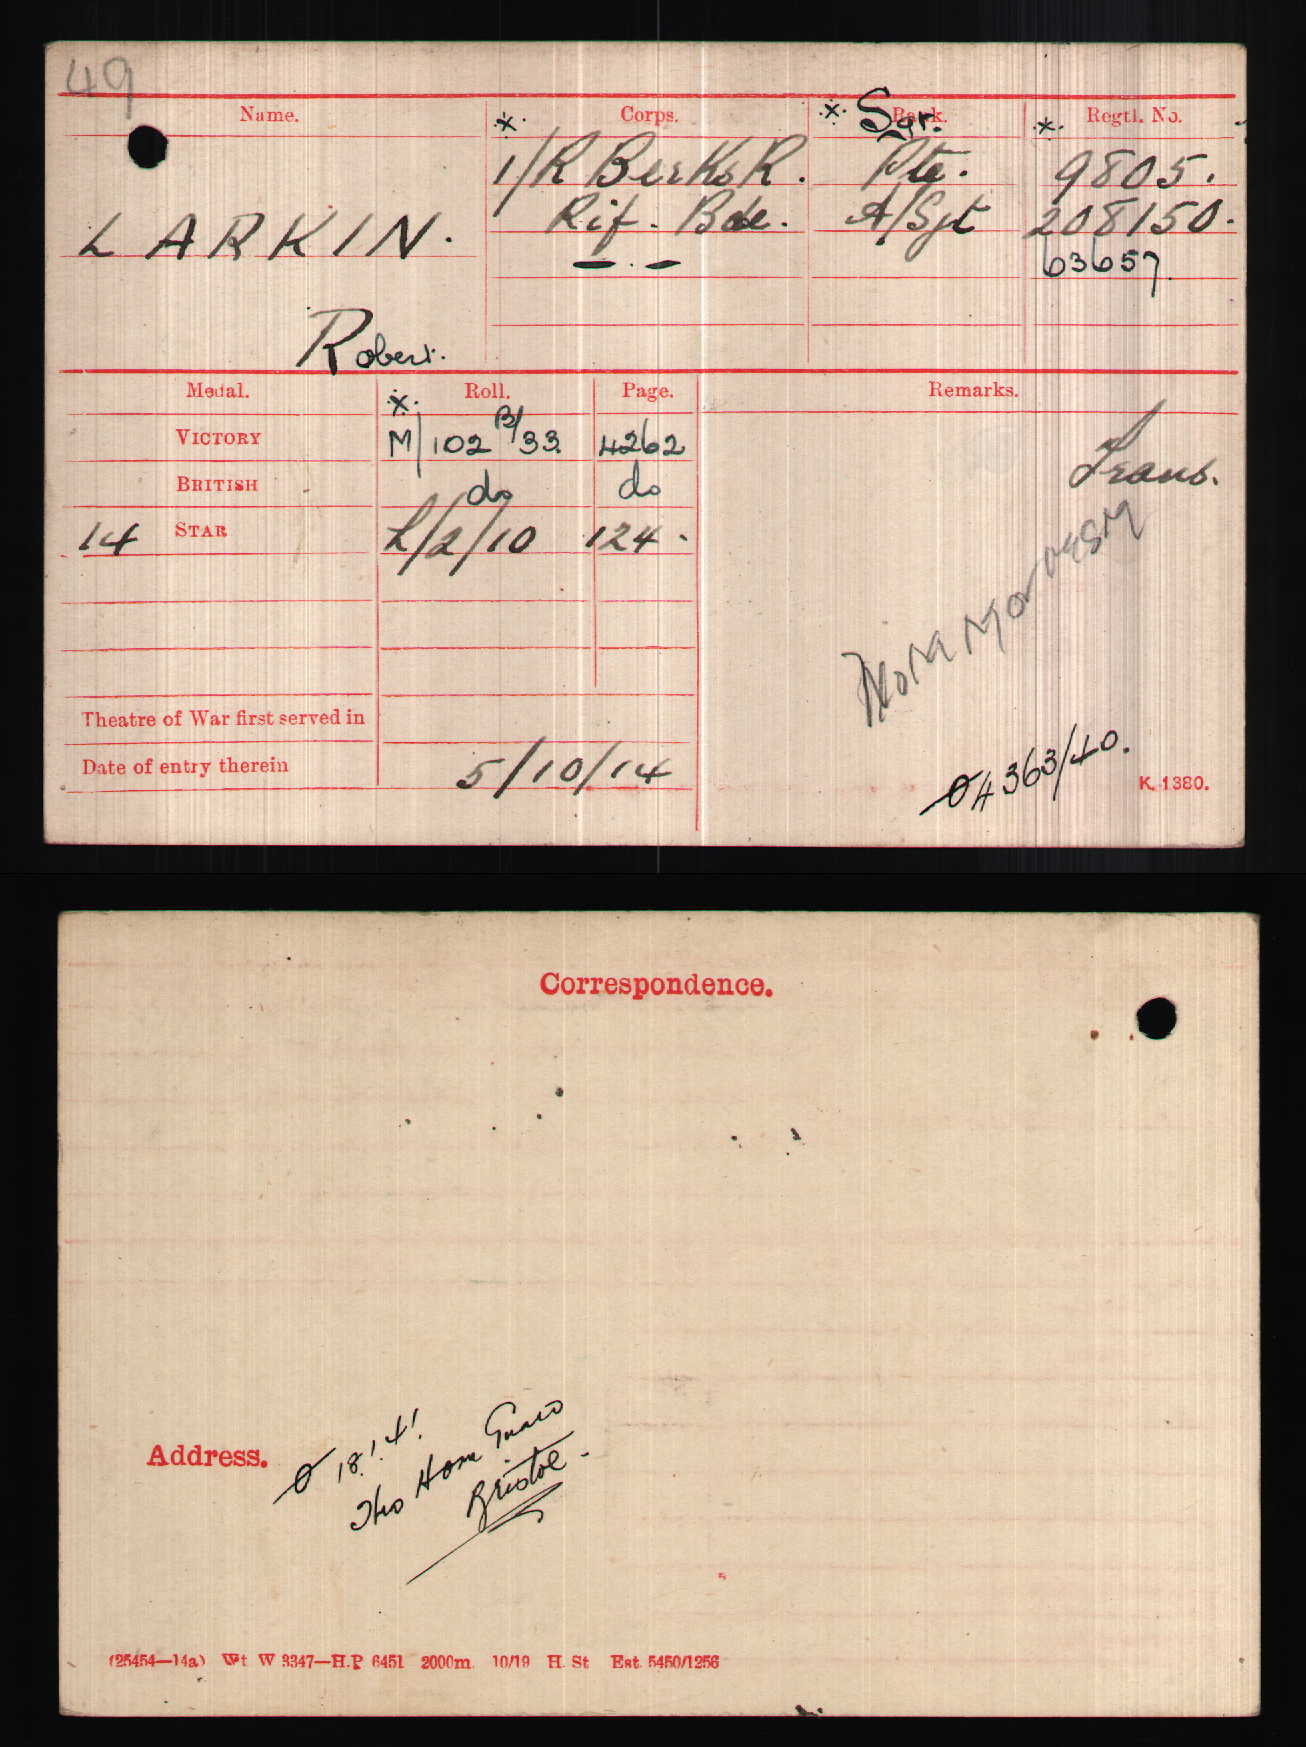 49
Name. Corps. Rank. Regtl. No.
Sgt.
1/R Berks R. Pte. 9805.
LARKIN. Rif. Bde. A/Sgt 208150.
— . — 63657.
Robert.
Medal. Roll. Page. Remarks.
VICTORY M/102 B/33 4262
BRITISH do do
Trans.
14 STAR L/2/10 124.
Theatre of War first served in
Date of entry therein 5/10/14
4363/40.
K. 1380.
Correspondence.
Address. 18.1.41
Home Guard
Bristol.
(25454—14a) Wt W 3347—H.P 6451 2000m. 10/19 H. St Est. 5450/1256